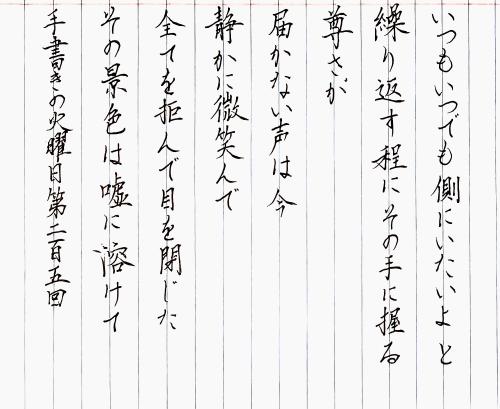 いつもいつでも側にいたいよと
繰り返す程にその手に握る
尊さが
届かない声は今
静かに微笑んで
全てを拒んで目を閉じた
その景色は嘘に溶けて
手書きの火曜日第二百五回